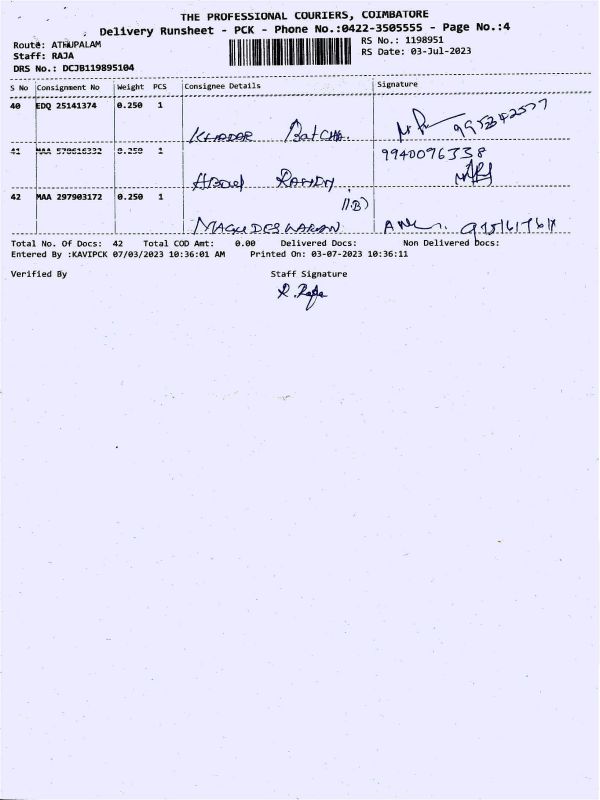 THE PROFESSIONAL COURIERS, COIMBATORE
Delivery Runsheet - PCK - Phone No.:0422-3505555 - Page No.:4
Route: ATHUPALAM
RS No.: 1198951
Staff: RAJA
RS Date: 03-Jul-2023
DRS No.: DCJB119895104
S No Consignment No Weight PCS Consignee Details Signature
40 EDQ 25141374 0.250 1
KHADAR BatCHA.
41 MAA 570616332 0.250 1 9940096338
42 MAA 297903172 0.250 1
MAGUDESWARAN
Total No. Of Docs: 42 Total COD Amt: 0.00 Delivered Docs: Non Delivered Docs:
Entered By :KAVIPCK 07/03/2023 10:36:01 AM Printed On: 03-07-2023 10:36:11
Verified By Staff Signature
R. Raja